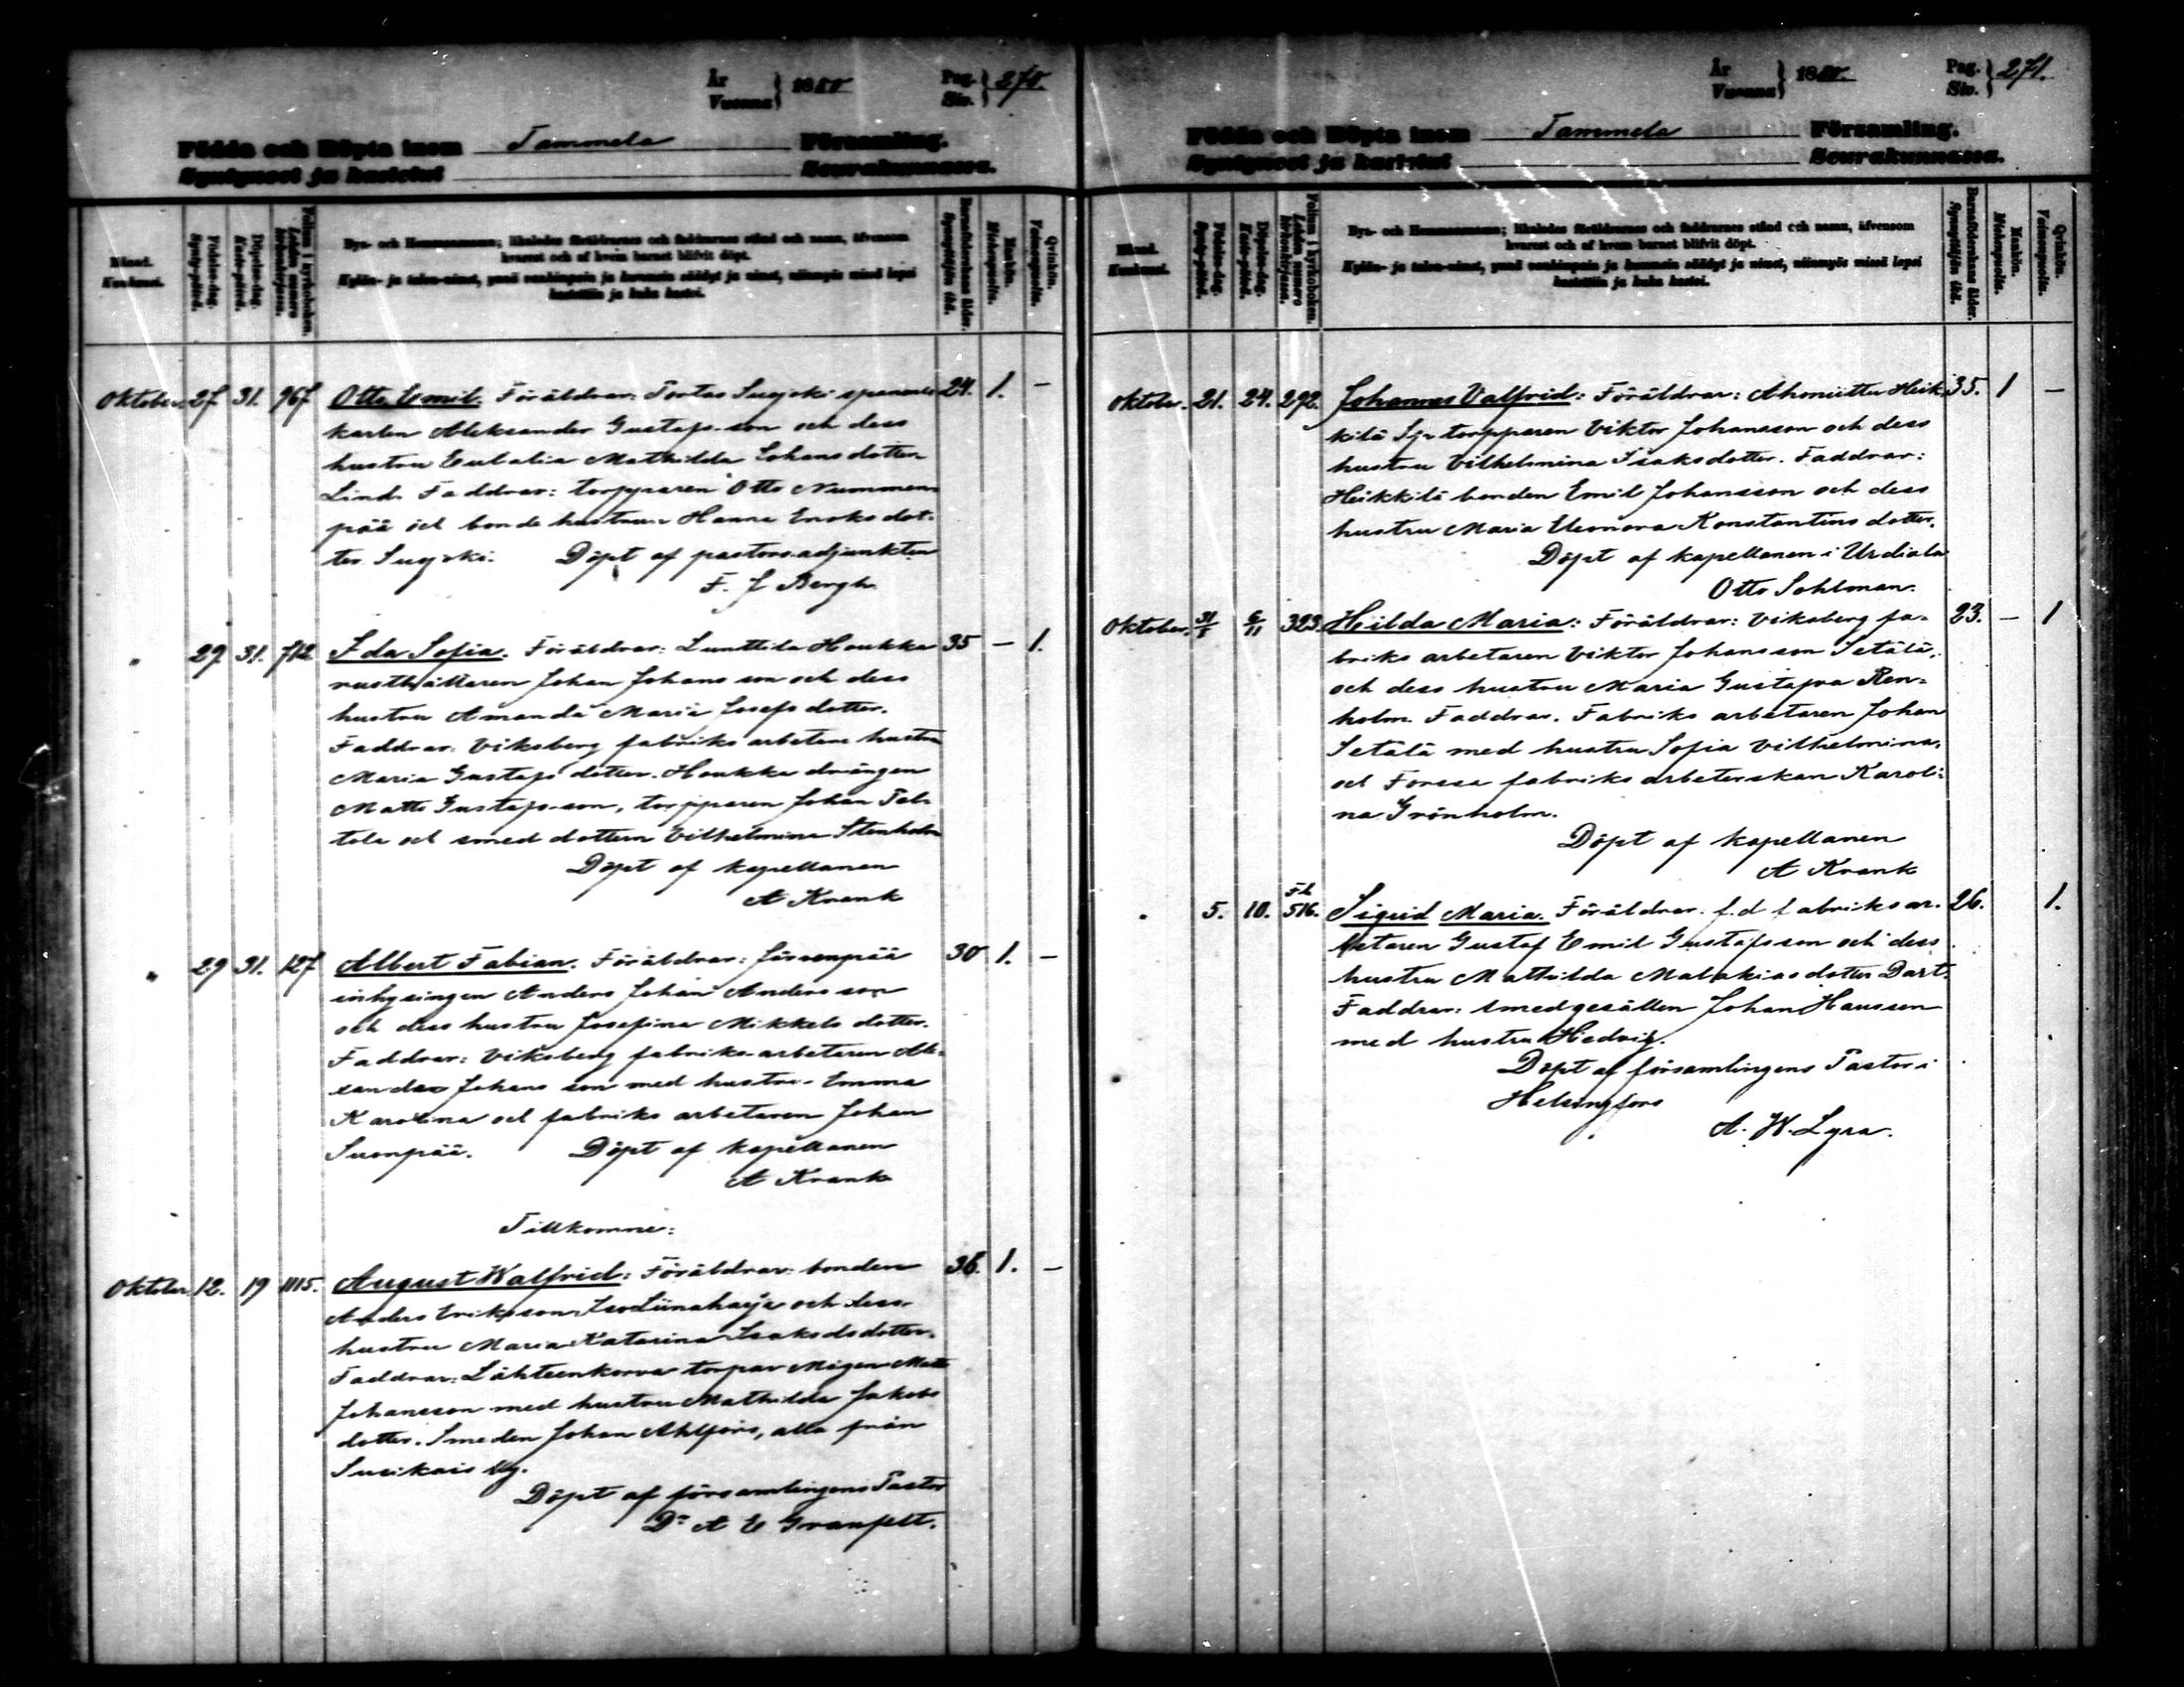 År
Vuonna } 1880
Pag.
Siv. } 270.
Födda och Döpta inom Tammela Församling.
Syntyneet ja kastetut Seurakunnassa.
Månad.
Kuukausi.
Födelse-dag.
Synty-päivä.
Döpelse-dag.
Kaste-päivä.
Folium i kyrkoboken.
Lehden numero kirkonkirjassa.
Bys- och Hemmansnamn; likaledes föräldrarnes och faddrarnes stånd och namn, äfvensom
hvarest och af hvem barnet blifvit döpt.
Kylän- ja talon-nimet, ynnä vanhimpain ja kummein säädyt ja nimet, niinmyös missä lapsi
kastettiin ja kuka kastoi.
Barnaföderskans ålder.
Synnyttäjän ikä.
Mankön.
Miehenpuolia.
Qvinkön.
Vaimonpuolia.
Oktober. 27 31. 967 Otto Emil. Föräldrar: Portas Suojoki spannmåls 24. 1. –
karlen Aleksander Gustafs-son och dess
hustru Eulalia Mathilda Johansdotter
Lind. Faddrar: torpparen Otto Nummen-
pää och bonde hustrun Hanna Enoks dot-
ter Suojoki. Döpt af pastors-adjunkten
F. J Bergh
" 29 31. 712 Ida Sofia. Föräldrar: Lunttila Houkka 35 – 1.
rusthållaren Johan Johans son och dess
hustru Amanda Maria Josefs dotter.
Faddrar: Viksberg fabriks arbetare hustru
Maria Gustafs dotter. Houkka drängen
Matts Gustafs-son, torpparen Johan Pel-
tola och smed dottern Vilhelmina Stenholm
Döpt af kapellanen
A Krank
" 29 31. 127 Albert Fabian. Föräldrar: Järvenpää 30 1. –
inhysingen Anders Johan Anders son
och dess hustru Josefina Mikkels dotter.
Faddrar: Viksberg fabriks-arbetaren Alek-
sander Johans son med hustru Emma
Karolina och fabriks arbetaren Johan
Suonpää. Döpt af kapellanen
A Krank
Tillkomne:
Oktober 12. 19 1115. August Walfrid: Föräldrar: bonden 36. 1. –
Anders Eriksson Iso Liinaharja och dess
hustru Maria Katarina Isaksdotter.
Faddrar: Lähteenkorva torpar Mågen Matts
Johansson med hustru Mathilda Jakobs
dotter. Smeden Johan Ahlfors, alla från
Susikais by.
Döpt af församlingens Pastor
Dr A E Granfelt.
År
Vuonna } 1880
Pag.
Siv. } 271.
Födda och Döpta inom Tammela Församling.
Syntyneet ja kastetut Seurakunnassa.
Månad.
Kuukausi.
Födelse-dag.
Synty-päivä.
Döpelse-dag.
Kaste-päivä.
Folium i kyrkoboken.
Lehden numero kirkonkirjassa.
Bys- och Hemmansnamn; likaledes föräldrarnes och faddrarnes stånd och namn, äfvensom
hvarest och af hvem barnet blifvit döpt.
Kylän- ja talon-nimet, ynnä vanhimpain ja kummein säädyt ja nimet, niinmyös missä lapsi
kastettiin ja kuka kastoi.
Barnaföderskans ålder.
Synnyttäjän ikä.
Mankön.
Miehenpuolia.
Qvinkön.
Vaimonpuolia.
Oktober. 21. 24. 292. Johannes Valfrid: Föräldrar: Ahonietta Heik- 35. 1 –
kilä torpparen Viktor Johansson och dess
hustru Vilhelmina Isaksdotter. Faddrar:
Heikkilä bonden Emil Johansson och dess
hustru Maria Eleonora Konstantins dotter.
Döpt af kapellanen i Urdiala
Otto Sohlman.
Oktober. 31 6/11 323. Hilda Maria: Föräldrar: Viksberg fa- 23. – 1
briks arbetaren Viktor Johansson Setälä,
och dess hustru Maria Gustafva Ren-
holm. Faddrar. Fabriks arbetaren Johan
Setälä med hustru Sofia Vilhelmina,
och Forssa fabriks arbeterskan Karoli-
na Grönholm.
Döpt af kapellanen
A Krank
" 5. 10. 516. Sigrid Maria. Föräldrar. f.d fabriks ar- 26. 1.
betaren Gustaf Emil Gustafsson och dess
hustru Mathilda Malakias dotter Dart.
Faddrar: smedgesällen Johan Hansson
med hustru Hedvig.
Döpt af församlingens Pastor i
Helsingfors
A. W. Lyra.